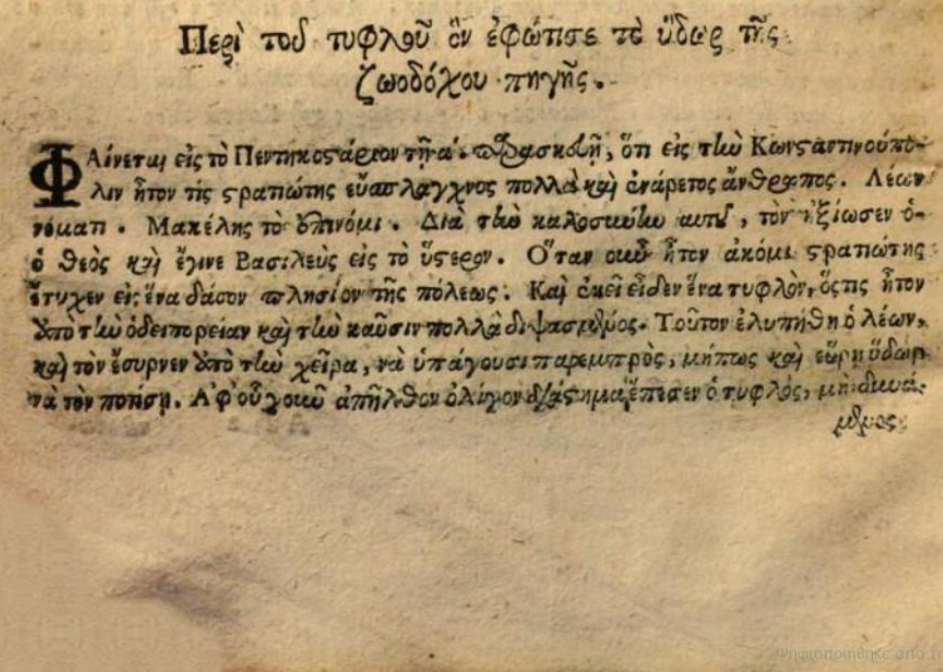 Περὶ τοῦ τυφλοῦ ὃν ἐφώτισε τὸ ὕδωρ τῆς
ζωοδόχου πηγῆς.
ΦΑίνεται εἰς τὸ Πεντηκοστάριον τῇ α'. παρασκευῇ, ὅτι εἰς τὴν Κωνσταντινούπο-
λιν ἦτον τὶς στρατιώτης εὔσπλαγχνος πολλὰ καὶ ἐνάρετος ἄνθρωπος. Λέων
νόματι. Μακέλης τὸ ἐπινόμι. Διὰ τὴν καλοσύνην αυτῦ, τὸν ἠξίωσεν ὁ-
ὁ θεὸς καὶ ἔγινε Βασιλεὺς εἰς τὸ ὕστερον. Ὅταν οὖν ἦτον ἀκόμι στρατιώτης
ἔτυχεν εἰς ἕνα δάσον πλησίον τῆς πόλεως. Καὶ ἐκεῖ εἶδεν ἕνα τυφλὸν, ὅςτις ἦτον
ἀπὸ τὴν ὁδειπορείαν καὶ τὴν καῦσιν πολλὰ διψασμένος. Τοῦτον ἐλυπήθη ὁ λέων,
καὶ τὸν ἔσυρνεν ἀπὸ τὴν χεῖρα, νὰ ὑπάγουσι παρεμπρὸς, μήπως καὶ εὕρῃ ὕδωρ
νὰ τὸν ποτήσῃ. Ἀφ' οὗ οὖν ἀπῆλθον ὀλίγον διάστημα ἔπεσεν ὁ τυφλὸς, μὴ δυνά-
μενος